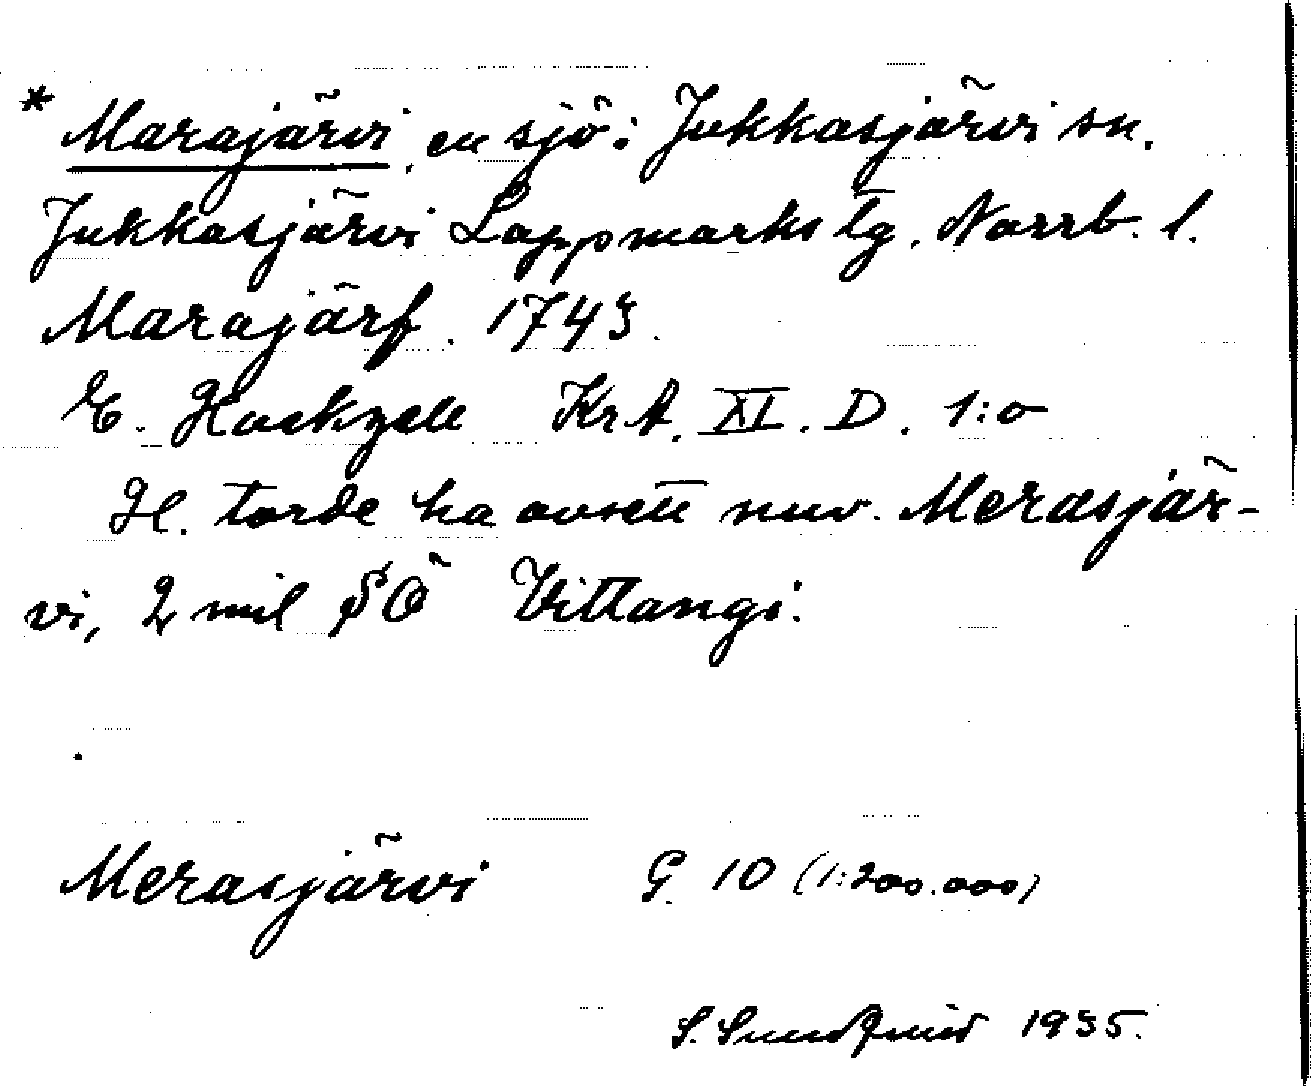 * Marajärvi, en sjö i Jukkasjärvi sn.
Jukkasjärvi Lappmarks tg. Norrb. l.
Marajärf. 1743.
E. Hackzell KrA. XI. D. 1:o
H. torde ha avsett nuv. Merasjär-
vi, 2 mil SÖ Vittangi.
Merasjärvi G. 10 (1:200.000)
S. Sundquist 1935.